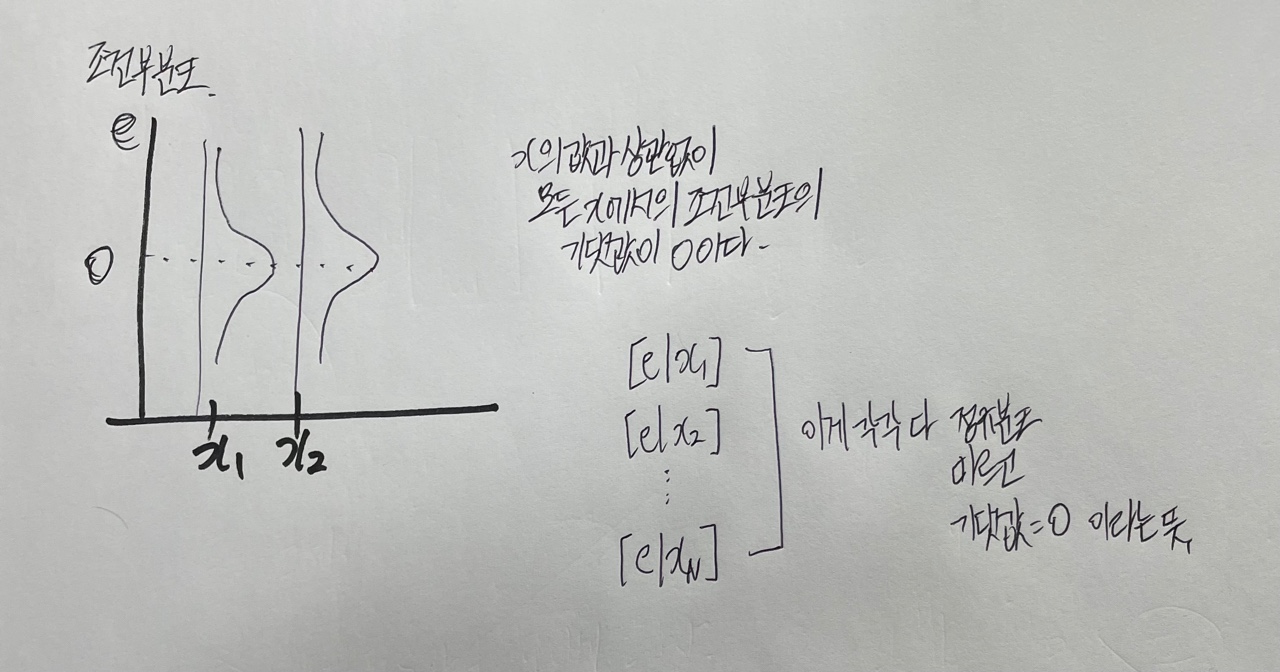 조건부분포.
e
0
x₁ x₂
x의 값과 상관없이
모든 x에서의 조건부분포의
기댓값이 0이다.
[e|x₁]
[e|x₂]
⋮
[e|x_N]
이게 각각 다 정규분포
이루고
기댓값=0 이라는 뜻,